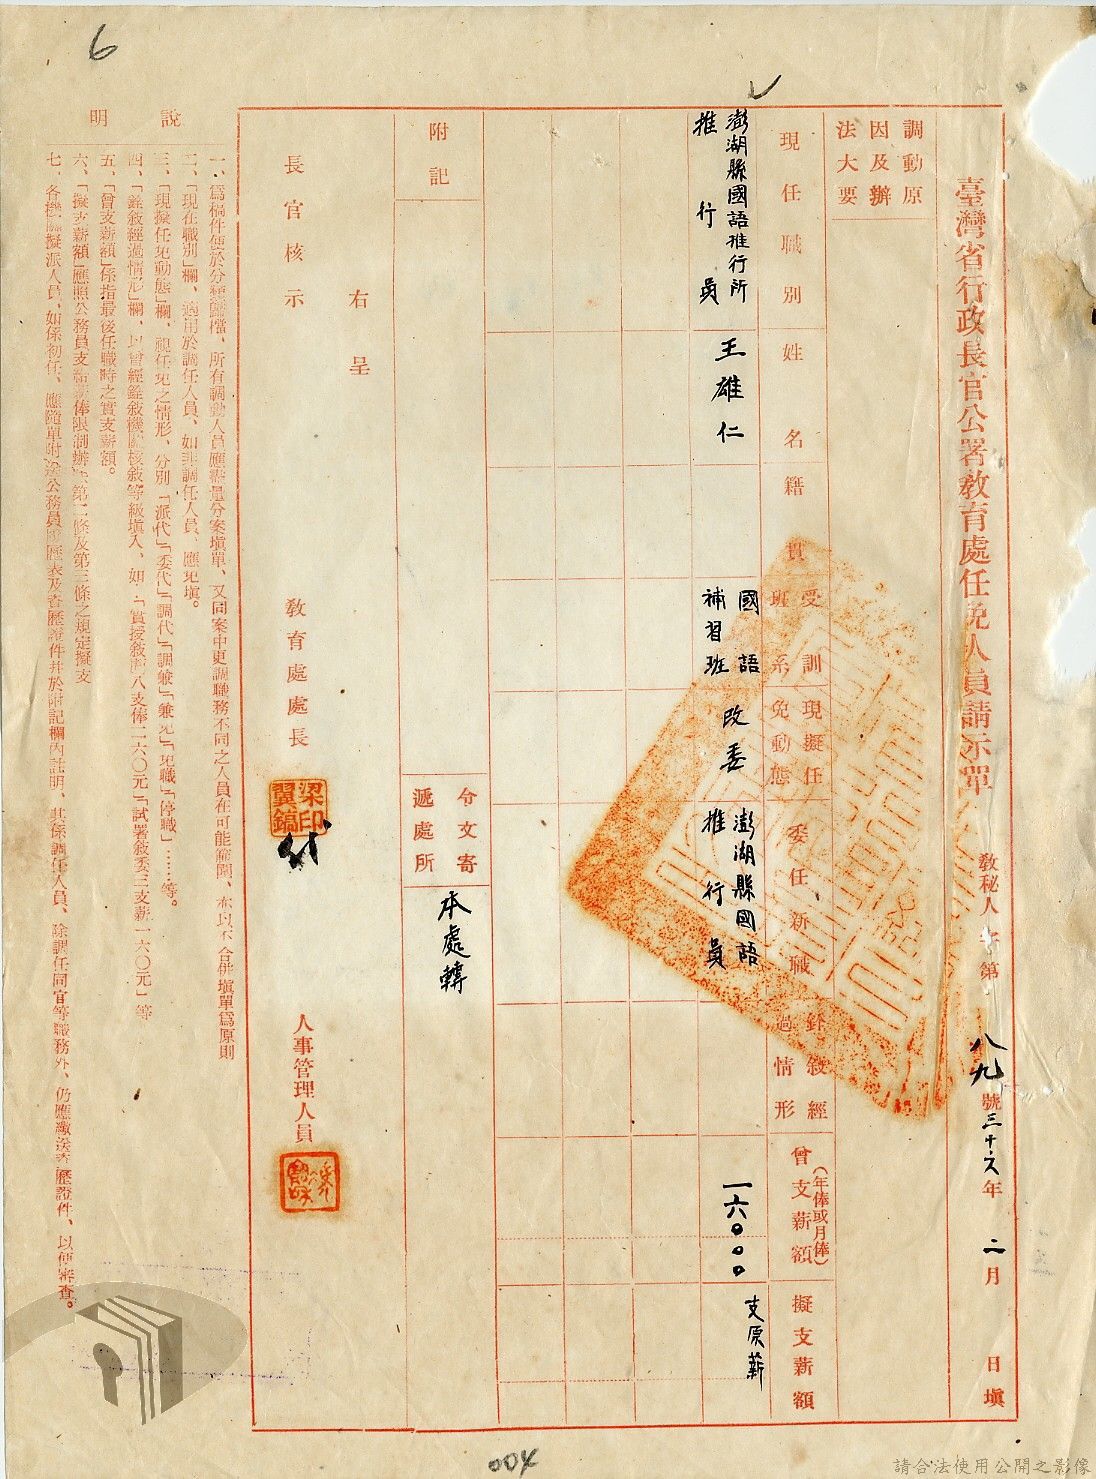 6
臺灣省行政長官公署教育處任免人員請示單
教秘人字第八九號三十六年二月 日填
調動原因及辦法大要
現任職別
姓名
籍貫
受訓班系
現擬任免動態
委任新職
銓敘經過情形
曾支薪額(年俸或月俸)
擬支薪額
澎湖縣國語推行所
推行員
王雄仁
國語
補習班
改委
澎湖縣國語
推行員
一六〇.〇〇
支原薪
附記
令文寄遞處所
本處轉
右呈
長官核示
教育處處長
梁翼鎬印
代
人事管理人員
說明
一、為稿件便於分類歸檔、所有調動人員應儘量分案填單、又同案中更調職務不同之人員在可能範圍、亦以不合併填單為原則
二、「現在職別」欄、適用於調任人員、如非調任人員、應免填。
三、「現擬任免動態」欄、視任免之情形、分別「派代」「委代」「調代」「調兼」「兼免」「免職」「停職」……等。
四、「銓敘經過情形」欄、以曾經銓敘機關核敘等級填入、如:「實授敘薦八支俸二六〇元」「試署敘委三支薪一六〇元」等
五、「曾支薪額」係指最後任職時之實支薪額。
六、「擬支薪額」應照公務員支給薪俸限制辦法第二條及第三條之規定擬支
七、各機關擬派人員、如係初任、應隨單附送公務員履歷表及查歷證件并於附記欄內註明、其係調任人員、除調任同官等職務外、仍應繳送查歷證件、以便審查。
004
請合法使用公開之影像